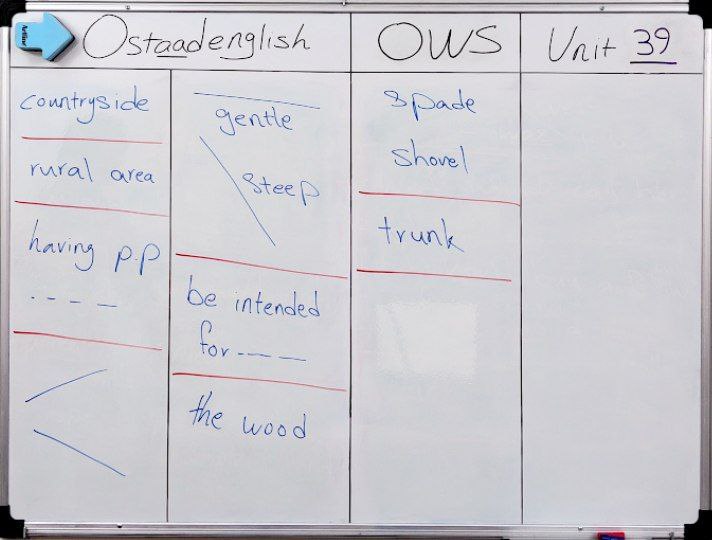 Ostaadenglish
OWS
Unit 39
countryside
rural area
having p.p
gentle
steep
be intended
for
the wood
spade
shovel
trunk